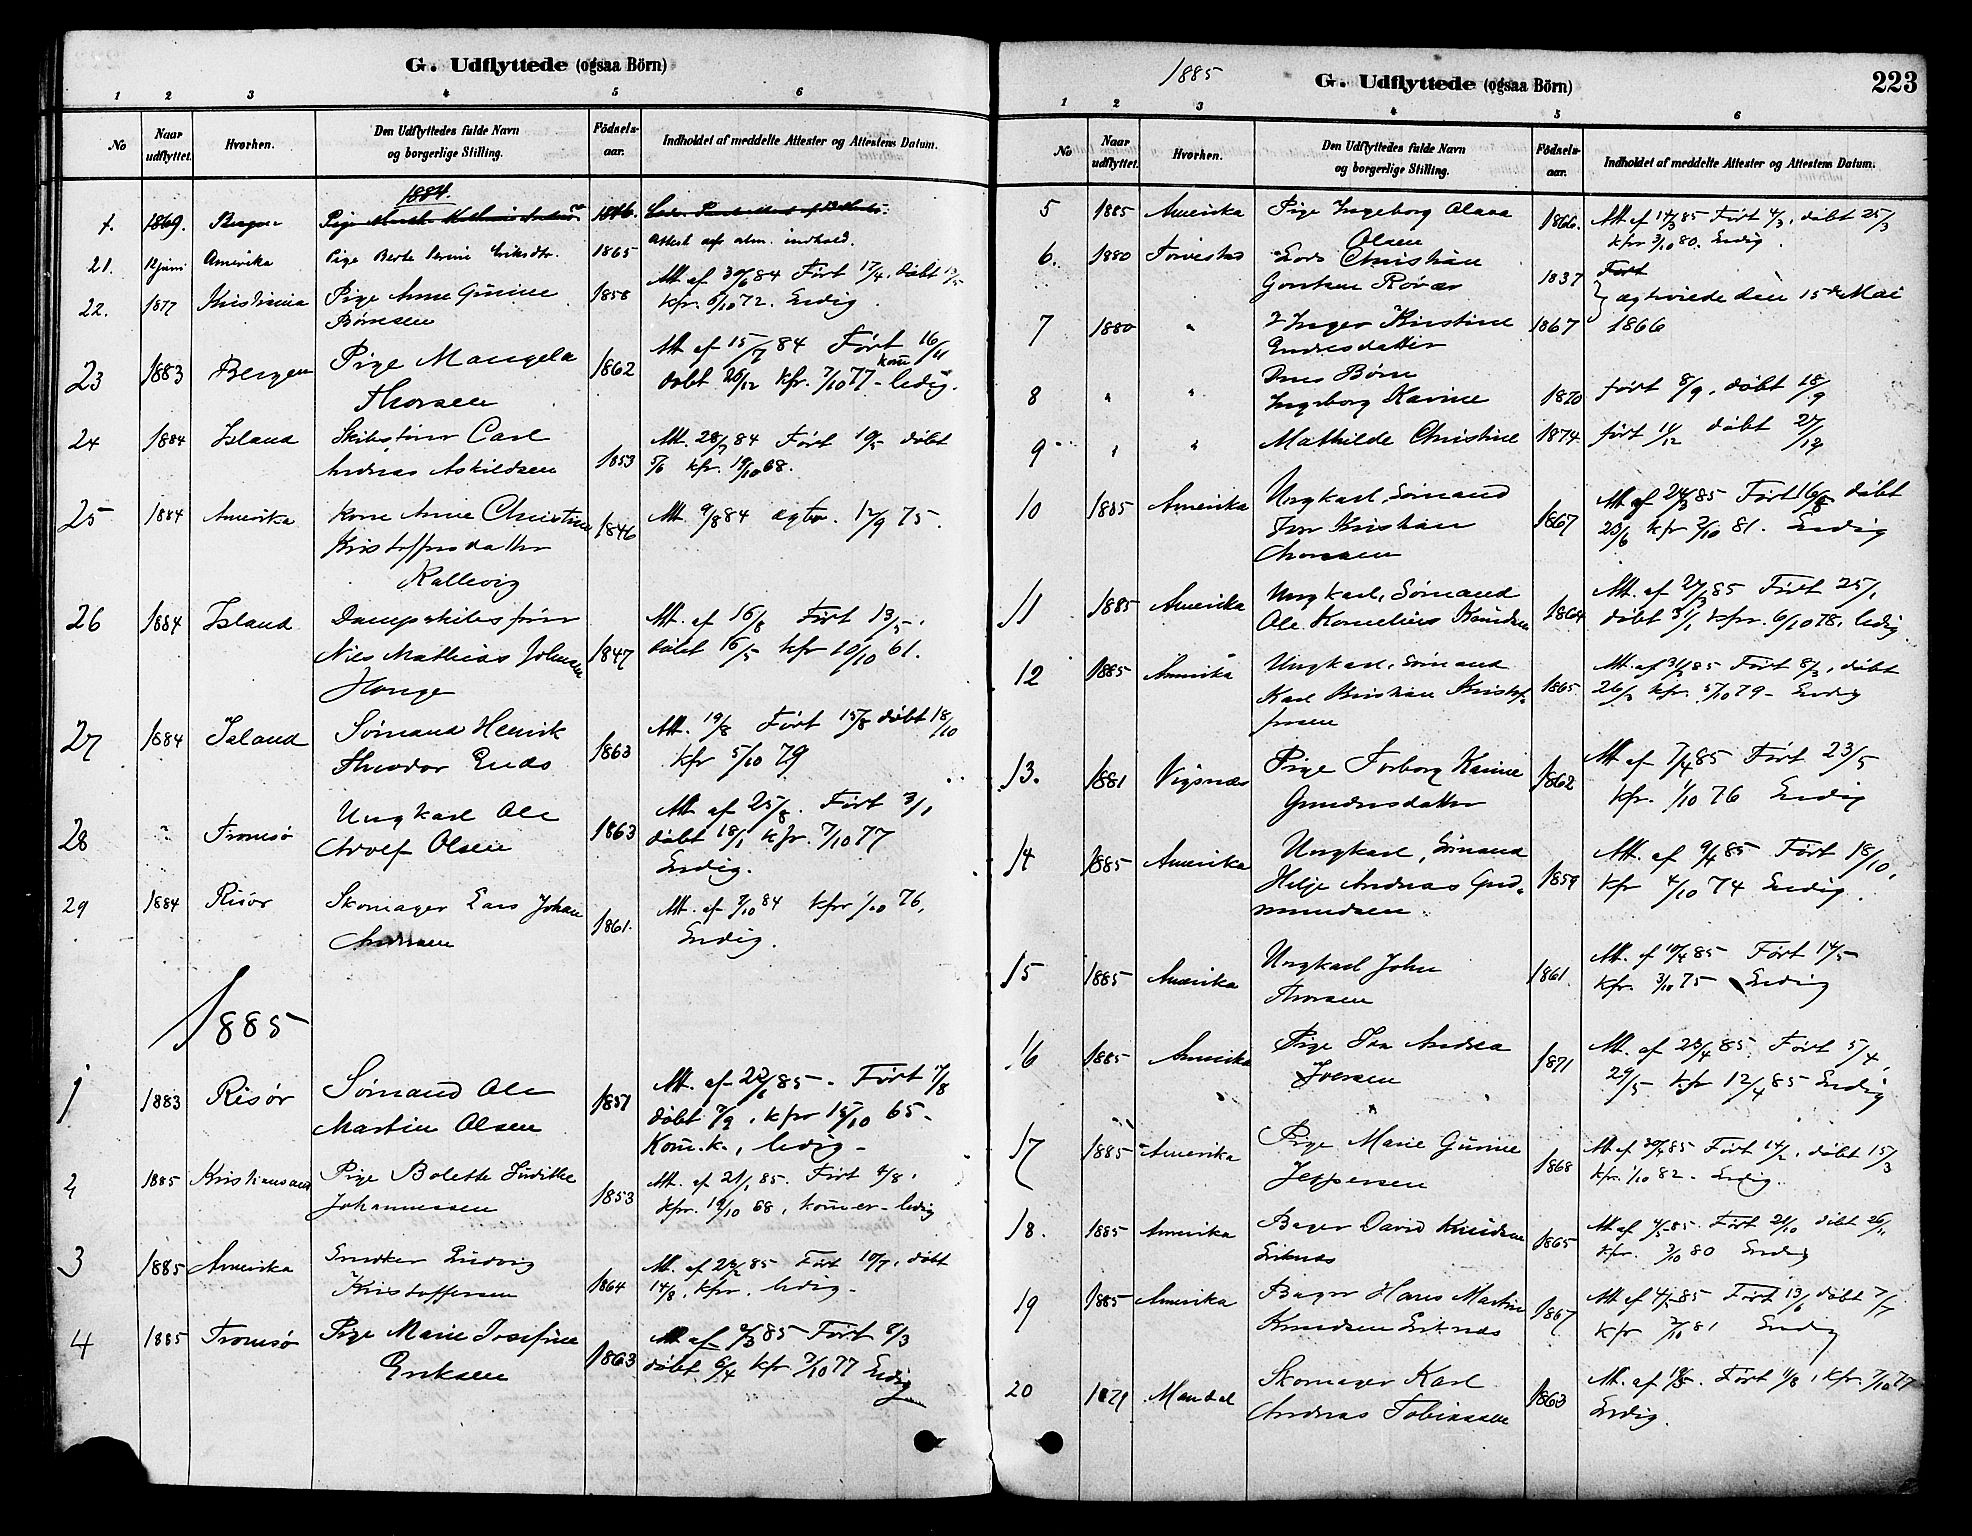 G. Udflyttede (ogsaa Börn)
1 2 3 4 5 6
No
Naar udflyttet.
Hvorhen.
Den Udflyttedes fulde Navn og borgerlige Stilling.
Födsels-aar.
Indholdet af meddelte Attester og Attestens Datum.
1884.
1869. Bergen Pige
Attest af alm. indhold.
21. 12 juni Amerika Pige Berte Serine Eriksdtr. 1865
22. 1877 Kristiania Pige Anne Gurine 1858 Att. af 30/6 84 Født 17/4. døbt
Børnesen kfr. 6/10 72. Ledig.
23 1883 Bergen Pige Mangela 1862 Att af 15/7 84 Født 16/11
Thorsen døbt 26/12 kfr. 7/10 77 - ledig.
24 1884 Island Skibsfører Carl Att. 28/7 84 Født 10/5 døbt
Andreas Askildsen 1853 5/6 kfr. 19/10 68.
25 1884 Amerika Kone Anne Christine 1846 Att. 9/8 84 ægtv. 12/9 75.
Kristoffersdatter
Kallevig
26 1884 Island Dampskibsfører Att. af 16/8 Født 13/5.
Nils Mathias Johnsen 1847 døbt 16/5 kfr 20/10 61.
Hauge
27 1884 Island Sømand Henrik 1863 Att. 19/8 Født 15/8 døbt 18/10
Theodor Ends kfr 5/10 79
28 " Tromsø Ungkarl Ole 1863 Att af 25/8. Født 3/1
Adolf Olsen døbt 18/1 kfr. 7/10 77
Ledig.
29 1884 Risør Skomager Lars Johan 1861. Att. af 3/10 84 kfr 1/10 76,
Andersen Ledig.
1885
1 1883 Risør Sømand Ole 1851 Att. af 22/1 85. Født 7/8
Martin Olsen døbt 7/9, kfr 15/10 65-
Kom. k., ledig -
2 1885 Kristiansand Pige Bolette 1853 Att. af 21/1 85. Født 4/8.
Johannessen kfr. 19/10 68, ledig
3 1885 Amerika Snedker Ludvig 1864 Att. af 23/2 85 Født 10/7. døbt
Kristoffersen 14/8. kfr. ledig.
4 1885 Tromsø Pige Marie Josefine 1863 Att af 2/3 85 Født 8/3
Eriksen døbt 6/4 kfr. 7/10 77 Ledig
1885
G. Udflyttede (ogsaa Börn)
223
1 2 3 4 5 6
No
Naar udflyttet.
Hvorhen.
Den Udflyttedes fulde Navn og borgerlige Stilling.
Födsels-aar.
Indholdet af meddelte Attester og Attestens Datum.
5 1885 Amerika Pige Ingeborg Olava 1866. Att af 14/3 85 Født 4/3, døbt 25/3
Olsen kfr 3/10 80. Ledig.
6. 1880 Torvestad Lods Christian 1837 Født
Røvær ægteviede den 15de Mai
7 1880 " Inger Kristine 1867 1866
Endresdatter
Deres Børn
8 " " Ingeborg Karine 1870 født 8/9, døbt 18/9
9 " " Mathilde Christine 1874 født 14/12 døbt 27/12
10 1885 Amerika Ungkarl, Sømand 1867 Att af 24/3 85 Født 16/5 døbt
Iver Kristian 23/6 kfr 2/10 81. Ledig
Thorsen
11 1885 Amerika Ungkarl, Sømand 1864 Att. af 27/3 85 Født 25/1
Ole Kornelius Knudsen døbt 31/1 kfr. 6/10 78, ledig
12 1885 Amerika Ungkarl, Sømand 1865. Att. af 31/3 85 Født 8/3, døbt
Karl Kristian Kristof- 26/3 kfr. 5/10 79 - Ledig
fersen
13. 1881 Vigsnæs Pige Torborg Karine 1862 Att af 7/4 85 Født 23/5
Gundersdatter kfr. 1/10 76 Ledig
14 1885 Amerika Ungkarl, Sømand 1859 Att. af 9/4 85 Født 18/10,
Helje Andreas Gud- kfr 4/10 74 Ledig.
mundsen
15 1885 Amerika Ungkarl John 1861. Att. af 10/4 85 Født 14/5
Thorsen kfr. 3/10 75 Ledig
16 1885 Amerika Pige Ina Andrea 1871 Att. af 23/4 85. Født 5/4,
Iversen 29/5 kfr 12/4 85 Ledig
17 1885 Amerika Pige Marie Gurine 1868 Att af 30/4 85 Født 14/2, døbt 15/3
Jeppersen kfr. 1/10 82 - Ledig.
18. 1885 Amerika Bager David Knudsen 1865 Att af 4/5 85. Født 21/10 døbt 26/1
Eiknæs kfr. 3/10 80 Ledig
19 1885 Amerika Bager Hans Martin 1867 Att af 4/5 85 Født 13/6 døbt 7/7
Knudsen Eiknæs kfr 2/10 81 Ledig
20 1879 Mandal Skomager Karl 1863 Att. af 19/5. Født 1/8, kfr. 7/10 77
Andreas Tobiassen Ledig.